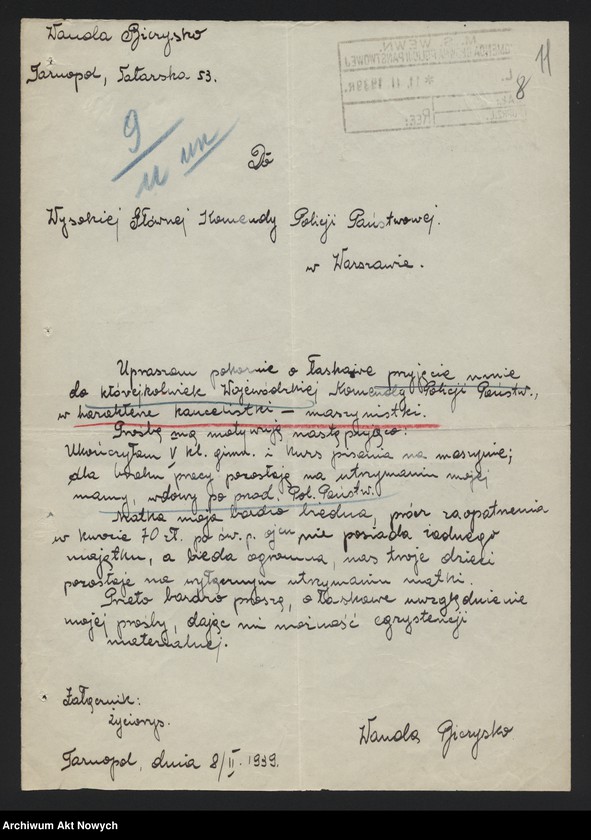 Wanda Bierysko
Tarnopol, Tatarska 53.
11
8
9
Do
Wysokiej Głównej Komendy Policji Państwowej.
w Warszawie.
Upraszam pokornie o łaskawe przyjęcie mnie
do którejkolwiek Wojewódzkiej Komendy Policji Państw.,
w harakterze kancelistki – maszynistki.
Prośbę mą motywuję następująco:
Ukończyłam V kl. gimn. i kurs pisania na maszynie;
dla braku pracy pozostaję na utrzymaniu mojej
mamy, wdowy po przod. Pol. Państw.
Matka moja bardzo biedna, prócz zaopatrzenia
w kwocie 70 zł. po św. p. ojcu nie posiada żadnego
majątku, a bieda ogromna, nas troje dzieci
pozostaje na wyłącznym utrzymaniu matki.
Przeto bardzo proszę, o łaskawe uwzględnienie
mojej prośby, dając mi możność egzystencji
materialnej.
Załącznik:
Życiorys.
Wanda Bierysko
Tarnopol, dnia 8/II. 1939.
Archiwum Akt Nowych